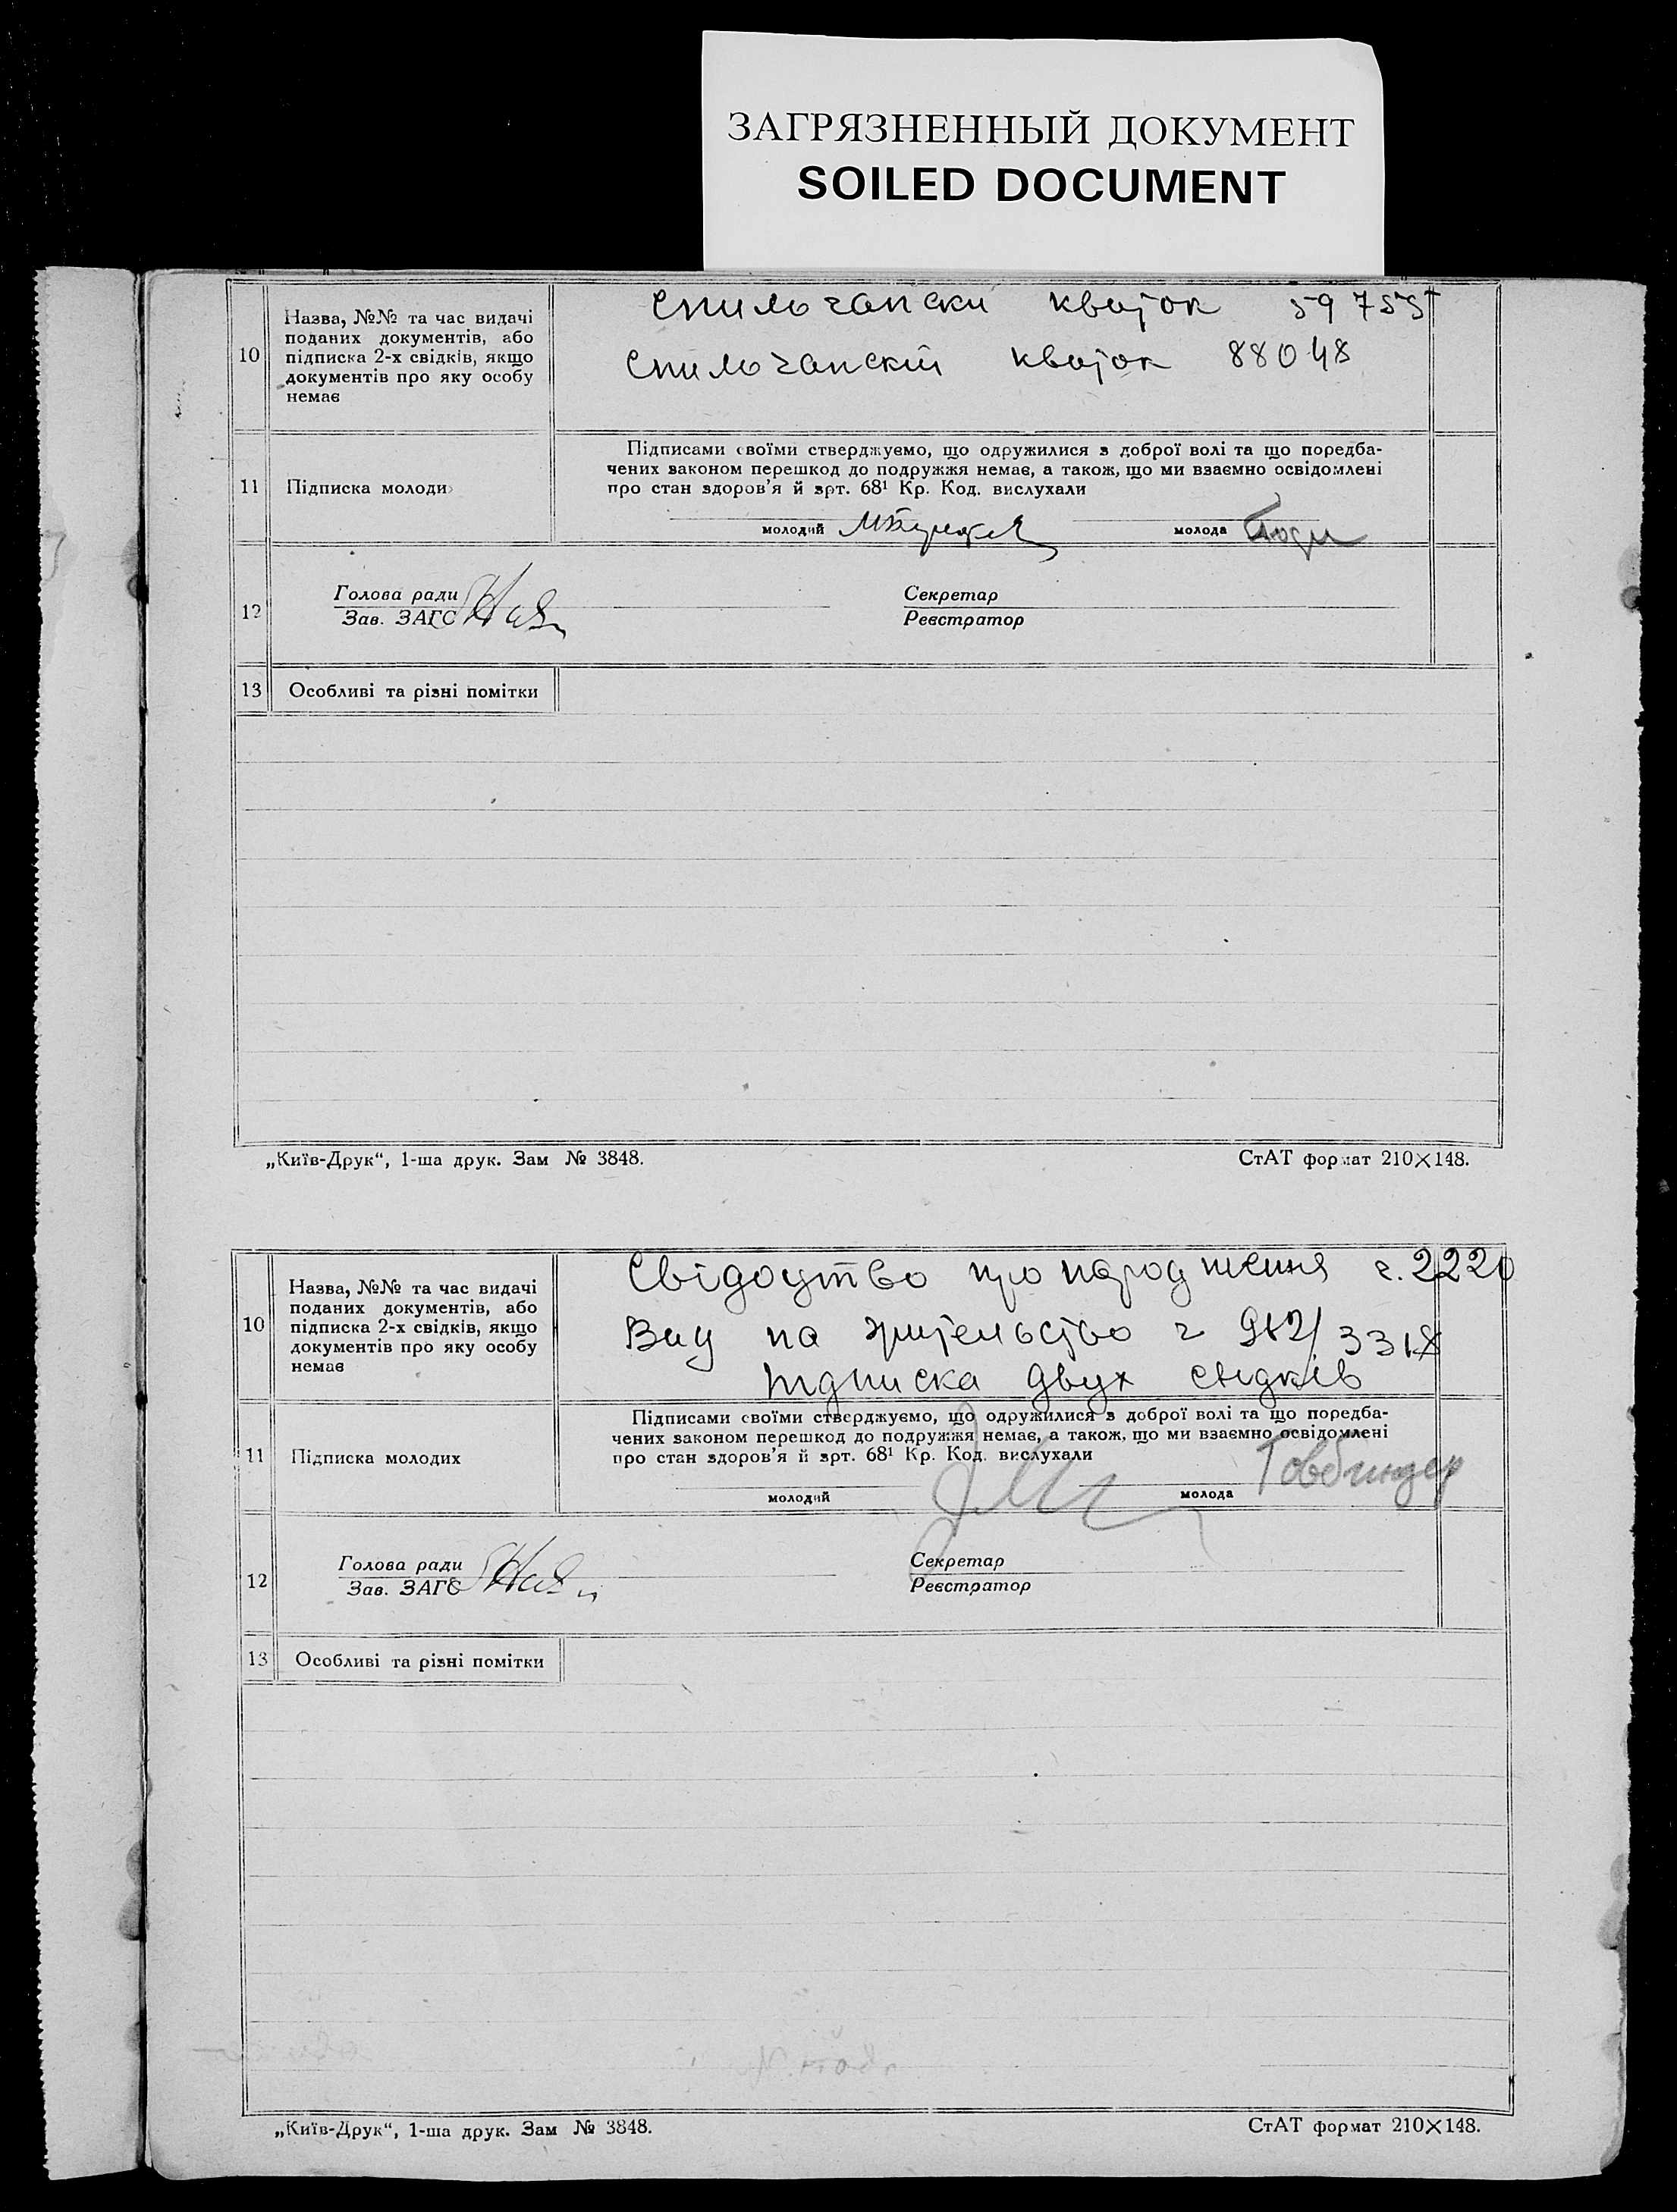 ЗАГРЯЗНЕННЫЙ ДОКУМЕНТ
SOILED DOCUMENT
10
Назва, №№ та час видачі
поданих документів, або
підписка 2-х свідків, якщо
документів про яку особу
немає
Спилочански квыток 59755
Спилочанский квыток 88048
11
Підписка молоди
Підписами своїми стверджуємо, що одружилися з доброї волі та що поредба-
чених законом перешкод до подружжя немає, а також, що ми взаємно освідомлені
про стан здоров'я й арт. 68¹ Кр. Код. вислухали
молодий
молода
12
Голова ради
Зав. ЗАГС
Секретар
Реєстратор
13
Особливі та різні помітки
„Київ-Друк“, 1-ша друк. Зам № 3848.
СтАТ формат 210×148.
10
Назва, №№ та час видачі
поданих документів, або
підписка 2-х свідків, якщо
документів про яку особу
немає
Свідоцтво про народження г. 2220
Вид на жительство г 982/3318
підписка двух свідків
11
Підписка молодих
Підписами своїми стверджуємо, що одружилися з доброї волі та що поредба-
чених законом перешкод до подружжя немає, а також, що ми взаємно освідомлені
про стан здоров'я й арт. 68¹ Кр. Код. вислухали
молодий
молода Говбиндер
12
Голова ради
Зав. ЗАГС
Секретар
Реєстратор
13
Особливі та різні помітки
„Київ-Друк“, 1-ша друк. Зам № 3848.
СтАТ формат 210×148.